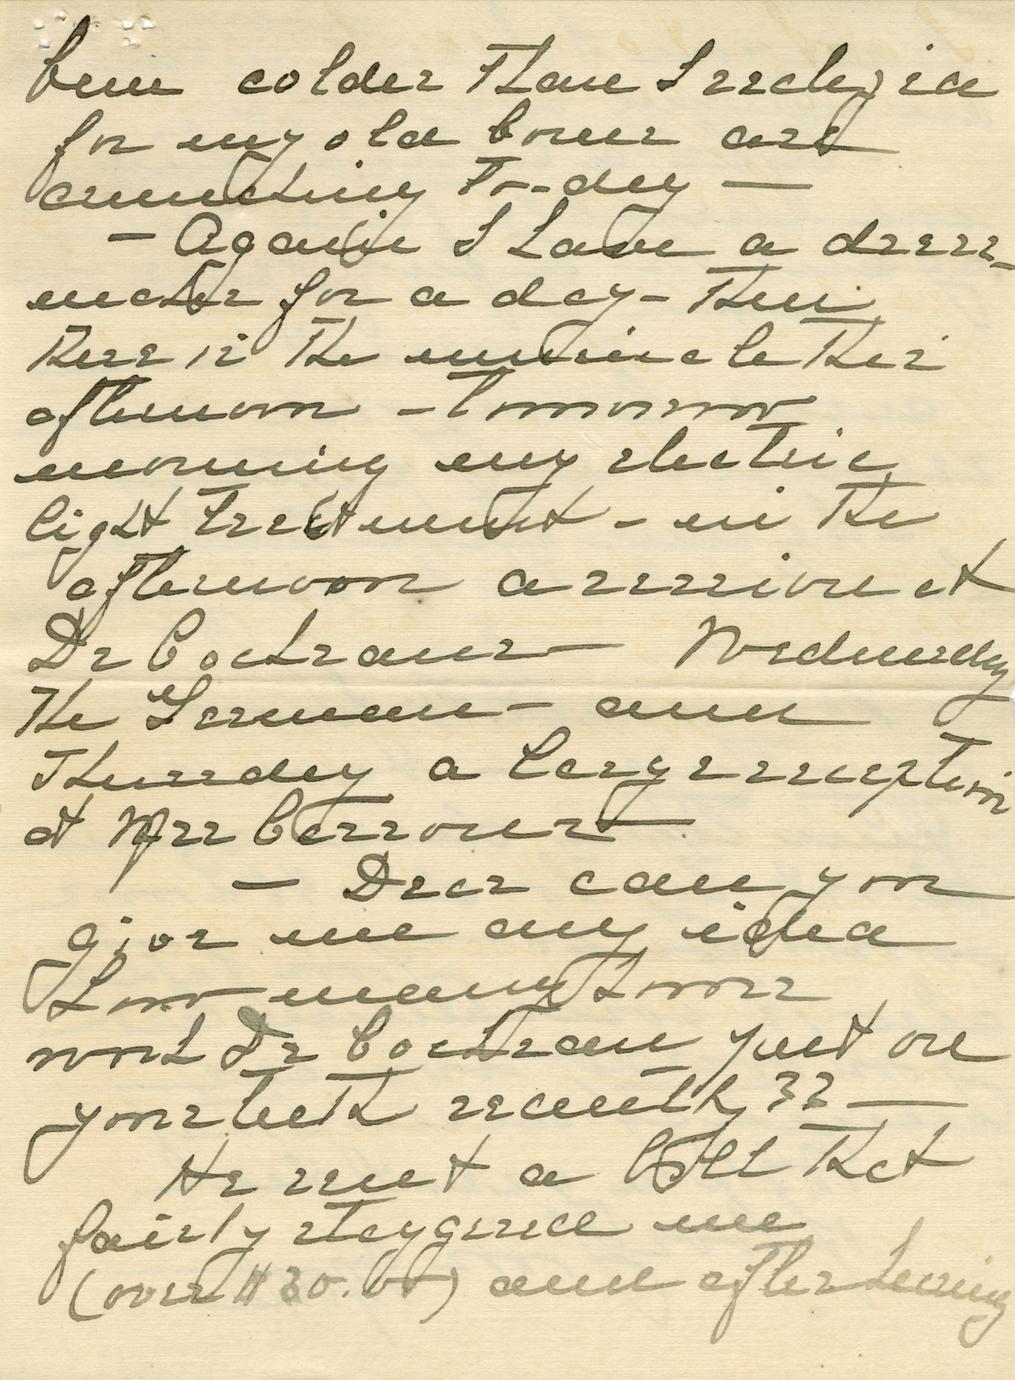 been colder than I realized
for my old bones are
crunching to-day —
— Again I have a dress-
maker for a day - then
there is the musicale this
afternoon - Tomorrow
morning my electric
light treatment - in the
afternoon a session at
Dr Cochrans — Wednesday
the German - and
Thursday a large reception
at Mrs
— Dear can you
give me any idea
how many hours
work Dr Cochran put on
your teeth recently ?? —
He sent a bill that
fairly staggered me
(over $30.00) and after having